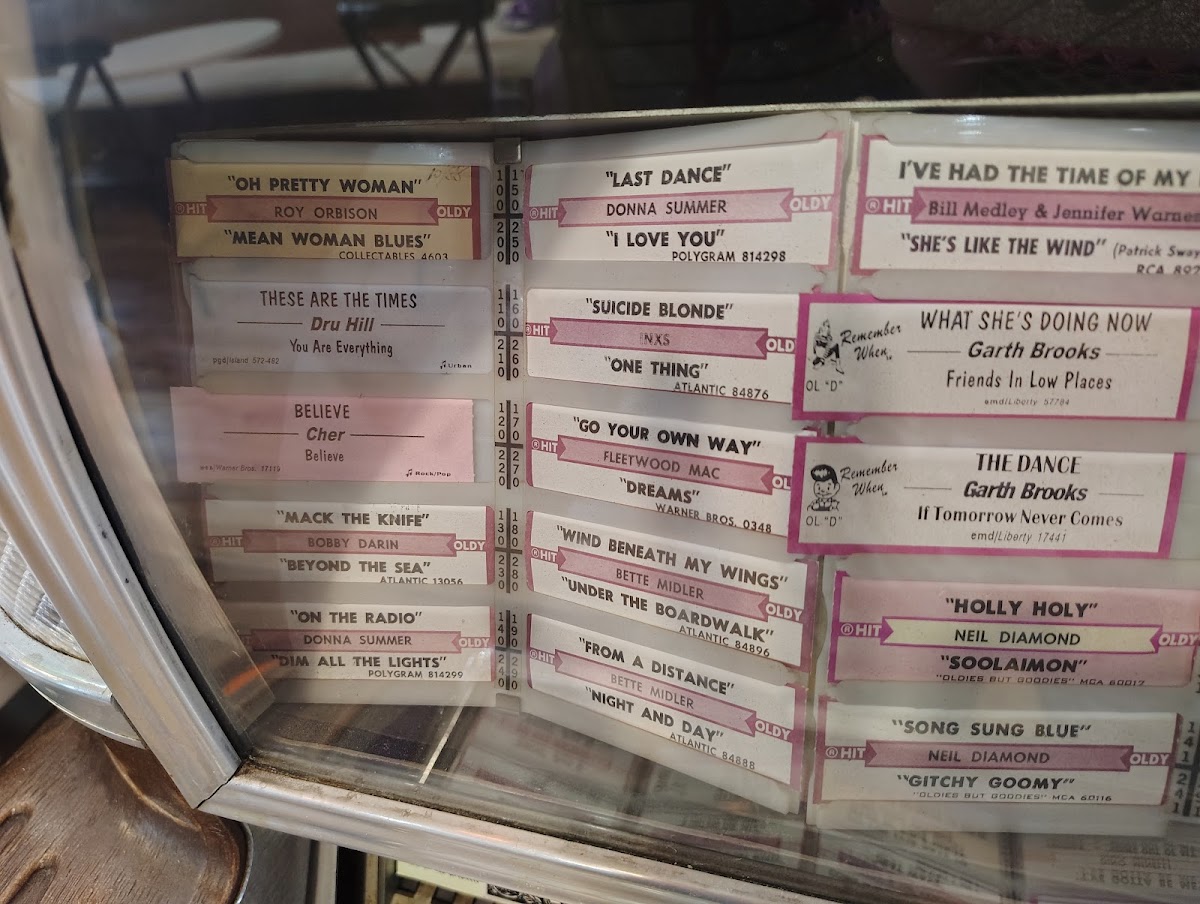 "OH PRETTY WOMAN"
® HIT ROY ORBISON OLDY
"MEAN WOMAN BLUES"
COLLECTABLES 4603
THESE ARE THE TIMES
Dru Hill
You Are Everything
pgd/Island 572-482
Urban
BELIEVE
Cher
Believe
wea/Warner Bros. 17119
Rock/Pop
"MACK THE KNIFE"
® HIT BOBBY DARIN OLDY
"BEYOND THE SEA"
ATLANTIC 13056
"ON THE RADIO"
® HIT DONNA SUMMER OLDY
"DIM ALL THE LIGHTS"
POLYGRAM 814299
100 150
200 250
110 160
210 260
120 170
220 270
130 180
230 280
140 190
240 290
"LAST DANCE"
® HIT DONNA SUMMER OLDY
"I LOVE YOU"
POLYGRAM 814298
"SUICIDE BLONDE"
® HIT INXS OLD
"ONE THING"
ATLANTIC 84876
"GO YOUR OWN WAY"
® HIT FLEETWOOD MAC OL
"DREAMS"
WARNER BROS. 0348
"WIND BENEATH MY WINGS"
® HIT BETTE MIDLER OLDY
"UNDER THE BOARDWALK"
ATLANTIC 84896
"FROM A DISTANCE"
® HIT BETTE MIDLER OLDY
"NIGHT AND DAY"
ATLANTIC 84888
I'VE HAD THE TIME OF MY
® HIT Bill Medley & Jennifer Warne
"SHE'S LIKE THE WIND" (Patrick Sway
RCA 897
Remember When..
OL "D"
WHAT SHE'S DOING NOW
Garth Brooks
Friends In Low Places
emd/Liberty 57784
Remember When..
OL "D"
THE DANCE
Garth Brooks
If Tomorrow Never Comes
emd/Liberty 17441
"HOLLY HOLY"
® HIT NEIL DIAMOND OLDY
"SOOLAIMON"
"OLDIES BUT GOODIES" MCA 60017
"SONG SUNG BLUE"
® HIT NEIL DIAMOND OLDY
"GITCHY GOOMY""
"OLDIES BUT GOODIES" MCA 60116
141
241